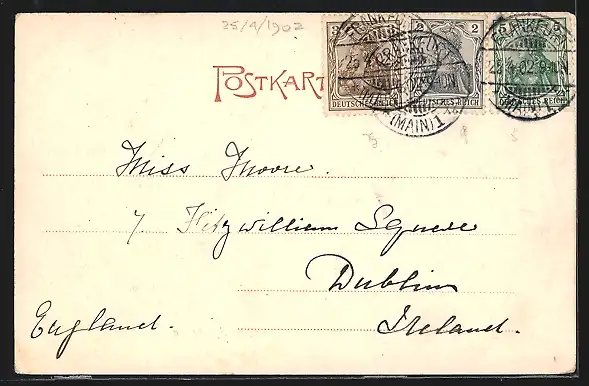 25/4/1902
3 2 5
DEUTSCHES REICH DEUTSCHES REICH DEUTSCHES REICH
(MAIN) 1
POSTKARTE
Miss Moore.
7 Fitzwilliam Square
Dublin
England. Ireland.